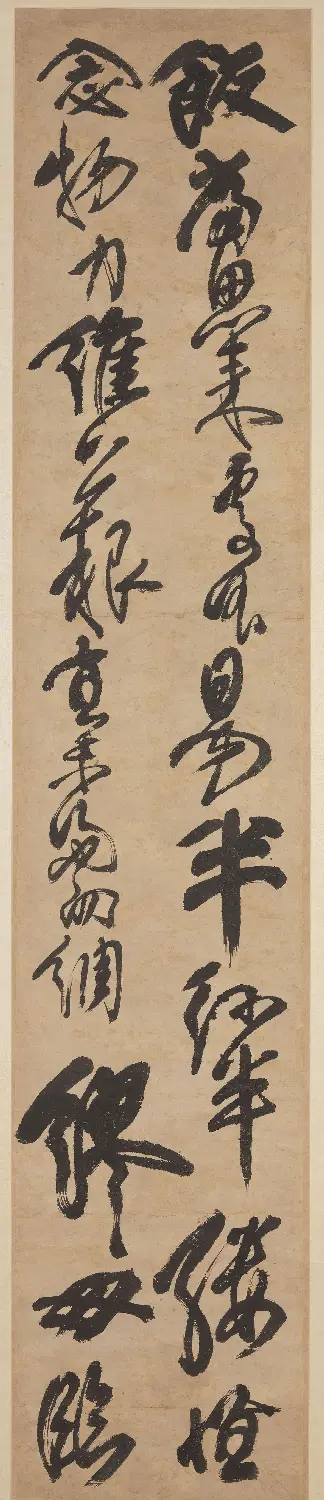 飯當思來處不易半絲半縷恒
念物力維艱宜未雨而綢繆毋臨